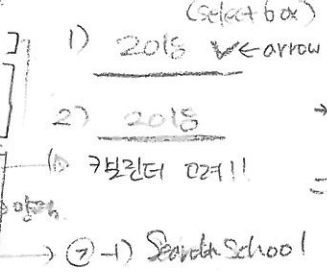 (select box)
1) 2018 ← arrow
2) 2018
캘린더
→ ⑦-1) Search School